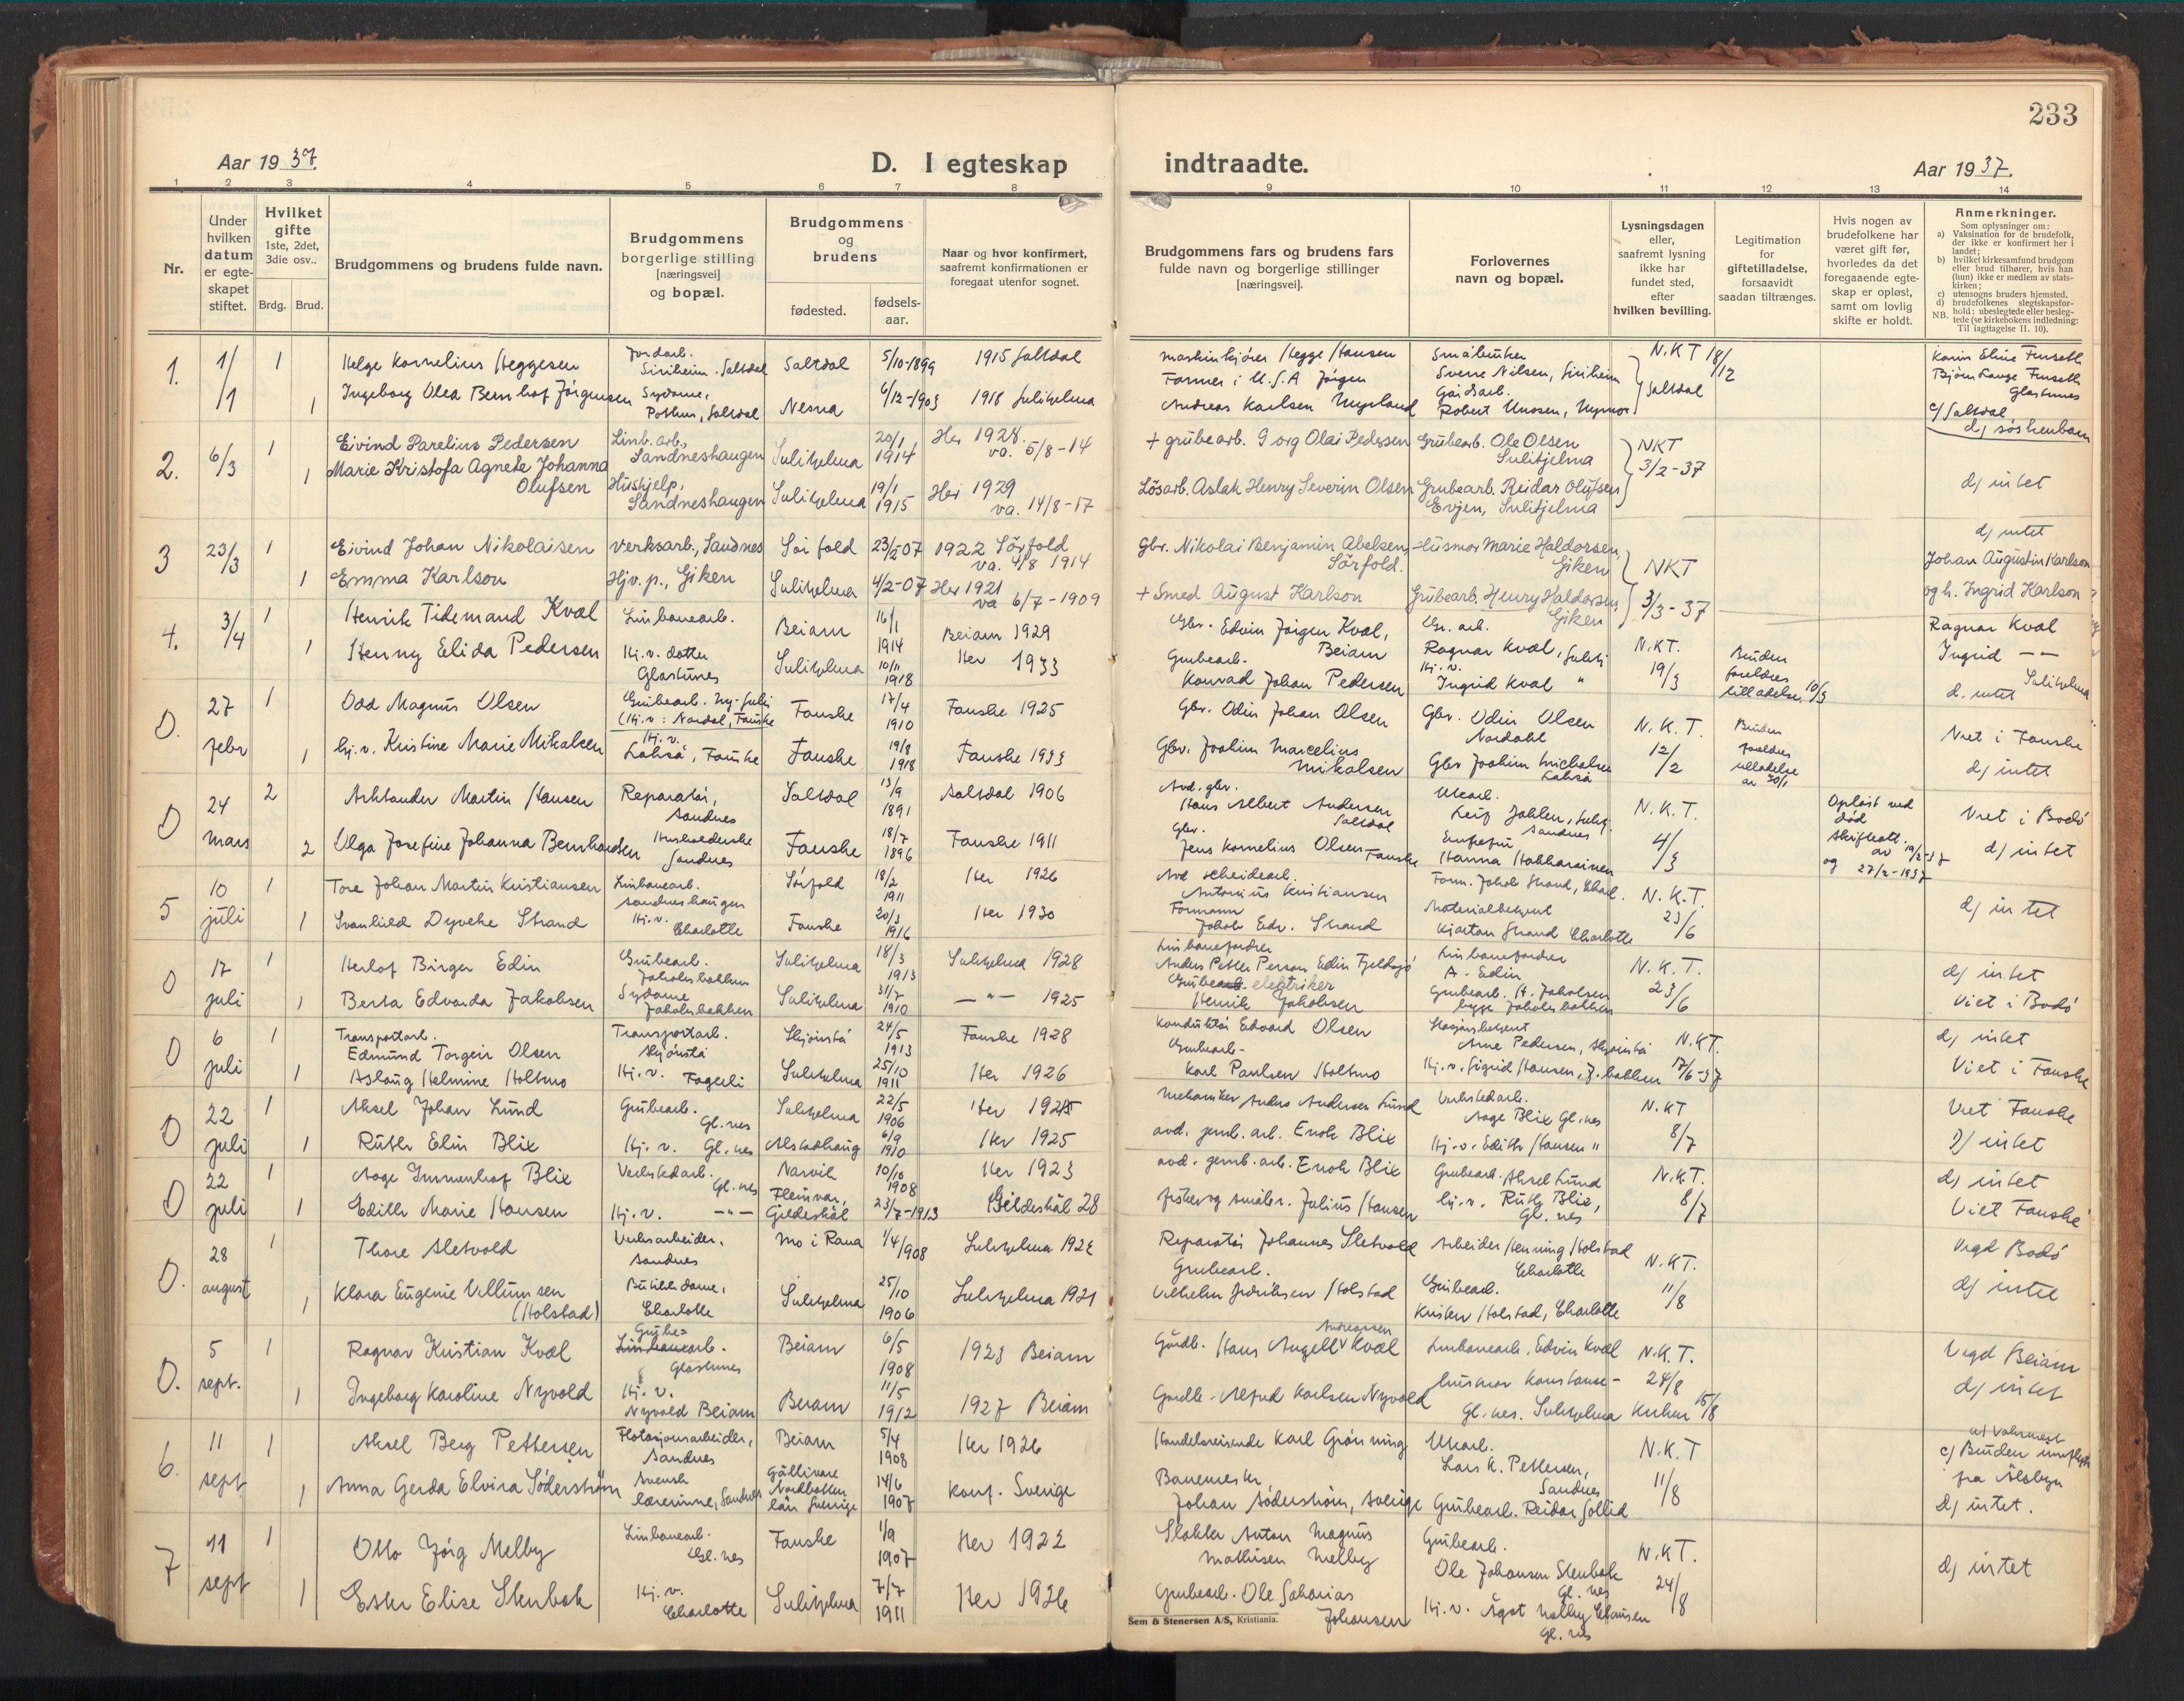 233
Aar 1937.
D. I egteskap
indtraadte.
Aar 1937.
1 2 3 4 5 6 7 8 9 10 11 12 13 14
Nr.
Under hvilken datum er egte-skapet stiftet.
Hvilket gifte
1ste, 2det, 3die osv..
Brdg. Brud.
Brudgommens og brudens fulde navn.
Brudgommens borgerlige stilling [næringsvei] og bopæl.
Brudgommens og brudens
fødested.
fødsels-aar.
Naar og hvor konfirmert, saafremt konfirmationen er foregaat utenfor sognet.
Brudgommens fars og brudens fars fulde navn og borgerlige stillinger [næringsvei].
Forlovernes navn og bopæl.
Lysningsdagen eller, saafremt lysning ikke har fundet sted, efter hvilken bevilling.
Legitimation for giftetilladelse, forsaavidt saadan tiltrænges.
Hvis nogen av brudefolkene har været gift før, hvorledes da det foregaaende egte-skap er opløst, samt om lovlig skifte er holdt.
Anmerkninger.
Som oplysninger om:
a) Vaksination for de brudefolk, der ikke er konfirmert her i landet;
b) hvilket kirkesamfund brudgom eller brud tilhører, hvis han (hun) ikke er medlem av stats-kirken;
c) utensogns bruders hjemsted.
d) brudefolkenes slegtskapsfor-hold: ubeslegtede eller besleg-tede (se kirkebokens indledning: Til iagttagelse II. 10).
NB.
1. 1/1 1 Helge Kornelius Heggesen Jordarb. Siriheim. Saltdal Saltdal 5/10-1899 1915 Saltdal maskinkjører Hegge Hansen Småbruker Sverre Nilsen, Siriheim N.K.T 18/12 Saltdal
Karin Eline Furseth
Bjørn Lange Furseth
Glastunes
1 Ingeborg Olea Bernhof Jörgensen Sydame, Pothus, Saltdal Nesna 6/12-1903 1918 Sulitjelma Farmer i U.S.A Jörgen Andreas Karlsen Gårdsarb. Robert
c/ Saltdal
d/ söskenbarn
2. 6/3 1 Eivind Parelius Pedersen Linb. arb., Sandneshaugen Sulitjelma 20/1 1914 Her 1928. va. 5/8-14 + grubearb. Georg Olai Pedersen Grubearb. Ole Olsen Sulitjelma NKT 3/2-37
1 Marie Kristofa Agnete Johanna Olufsen Hushjelp, Sandneshaugen Sulitjelma 19/1 1915 Her 1929 va. 14/8-17 Lösarb. Aslak Henry Severin Olsen Grubearb. Reidar Olufsen Evjen, Sulitjelma d/ intet
3 23/3 1 Eivind Johan Nikolaisen Verksarb., Sandnes Sörfold 23/2 07 1922 Sörfold va. 4/8 1914 Gbr. Nikolai Benjamin Abelsen, Sörfold. Husmor Marie Haldorsen, Giken NKT 3/3-37
d/ intet
Johan Augustin Karlson
og h. Ingrid Karlson
1 Emma Karlson Hjv.p., Giken Sulitjelma 4/2-07 Her 1921 va 6/7-1909 + Smed August Karlson Grubearb. Henry Haldorsen, Giken
4. 3/4 1 Henrik Tidemand Kval Linbanearb. Beiarn 16/1 1914 Beiarn 1929 Gbr. Edvin Jörgen Kval, Beiarn Gr. arb. Ragnar Kval, Sulitj N.KT. 19/3 Brudens foreldres tilladelse 10/3
Ragnar Kval
Ingrid — —
Sulitjelma
d. intet
1 Henny Elida Pedersen Hj.v. datter Glastunes Sulitjelma 10/11 1918 Her 1933 Grubearb. Konrad Johan Pedersen Hj.v. Ingrid Kval "
0. 27 febr 1 Odd Magnus Olsen Grubearb. Ny-Sulis (Hj.v: Nordal, Fauske Fauske 17/4 1910 Fauske 1925 Gbr. Odin Johan Olsen Gbr. Odin Olsen Nordahl N.K.T. 12/2 Brudens foreldres tilladelse av 30/1 Viet i Fauske
1 hj.v. Kristine Marie Mikalsen Hj.v. Lakså, Fauske Fauske 19/8 1918 Fauske 1933 Gbr. Joakim Marcelius Mikalsen Gbr Joakim Michalsen Lakså d/ intet
0 24 mars 2 Arklander Martin Hansen Reparatör, Sandnes Saltdal 13/9 1891 Saltdal 1906 Avd. gbr. Hans Albert Andersen Saltdal Ukearb. Leif Jahlen, Sulitj. Sandnes N.K.T. 4/3 Oplöst ved död Skifteatt. av 19/2-37 og 27/2-1937 Viet i Bodö
2 Olga Josefine Johanna Bernhardsen Husholderske Sandnes Fauske 18/7 1896 Fauske 1911 Gbr. Jens Kornelius Olsen Fauske Hanna Hakkarainen d/ intet
5 10 juli 1 Tore Johan Martin Kristiansen Linbanearb. Sandneshaugen Sörfold 18/2 1911 Her 1926 Avd scheidearb. Antonius Kristiansen Form. Jakob Strand, Charl. N.K.T. 23/6
1 Svanhild Dyveke Strand Hj.v. Charlotte Fauske 20/3 1916 Her 1930 Formann Jakob Edv. Strand Materialbetjent Kjartan Strand Charlotte d/ intet
0 17 juli 1 Herlof Birger Edin Grubearb. Jakobsbakken Sulitjelma 18/3 1913 Sulitjelma 1928 Linbaneformann Anders Petter Person Edin Fjeldsjö A. Edin N.K.T. 23/6 d/ intet
1 Berta Edvarda Jakobsen Sydame Jakobsbakken Sulitjelma 31/7 1910 — " — 1925 Grubearb. elektriker Henrik Jakobsen Grubearb. H. Jakobsen begge Jakobsbakken Viet i Bodö
0 6 juli 1 Transportarb. Edmund Torgeir Olsen Transportarb. Skjönstå Skjönstå 24/5 1913 Fauske 1928 Konduktör Edvard Olsen Stasjonsbetjent Arne Pedersen, Skjönstå N.KT. 17/6-37 d/ intet
1 Aslaug Helmine Holtmo Hj.v. Fagerli Sulitjelma 25/10 1911 Her 1926 Grubearb. Karl Paulsen Holtmo Hj.v. Sigrid Hansen, J.bakken Viet i Fauske
0 22 juli 1 Aksel Johan Lund Grubearb. Gl.nes Sulitjelma 22/5 1906 Her 1925 Mekaniker Anders Andersen Lund Verkstedarb. Aage Blix Gl.nes N.KT 8/7 Viet Fauske
1 Ruth Elin Blix Hj.v. Gl.nes Alstadhaug 6/9 1910 Her 1925 avd. jernb. arb. Enok Blix Hj.v. Edith Hansen " D/ intet
0 22 juli 1 Aage Immenhof Blix Verkstedarb. Gl.nes Narvik 10/10 1908 Her 1923 avd. jernb. arb. Enok Blix Grubearb. Aksel Lund N.K.T. 8/7 d/ intet
1 Edith Marie Hansen Hj.v. — " — Fleinvær, Gildeskål 23/7-1913 Gildeskål 28 fisker og småbr. Julius Hansen hj.v. Ruth Blix, Gl.nes Viet Fauske
0. 28 august 1 Thore Sletvold Verksarbeider. Sandnes Mo i Rana 1/4/908 Sulitjelma 1923 Reparatör Johannes Sletvold Arbeider Henning Holstad Charlotte N.K.T. 11/8 Vigd Bodö
1 Klara Eugenie Villumsen (Holstad) Butikkdame, Charlotte Sulitjelma 25/10 1906 Sulitjelma 1921 Grubearb. Vilhelm Fredriksen Holstad Grubearb. Kristen Holstad, Charlotte d/ intet
0. 5 sept. 1 Ragnar Kristian Kval Grube= Linbanearb. Glastunes Beiarn 6/5 1908 1923 Beiarn Gårdb. Hans Angell Andreassen Kval Linbanearb. Edvin Kval N.K.T. 24/8 Vigd Beiarn
1 Ingeborg Karoline Nyvold Hj.v. Nyvold Beiarn Beiarn 11/5 1912 1927 Beiarn Gårdb. Alfred Karlsen Nyvold husmor Konstanse - Gl.nes. Sulitjelma kirken 15/8 d/ intet
6. 11 sept 1 Aksel Berg Pettersen Flotasjonsarbeider, Sandnes Beiarn 5/4 1908 Her 1926 Handelsreisende Karl Grönning Ukearb. Lars K. Pettersen, Sandnes N.K.T 11/8
c/ Bruden innflytt
fra Älvsbyn
d/ intet.
1 Anna Gerda Elvira Söderström Svensk lærerinne, Sandnes Gällivare Nordbotten län Sverige 14/6 1907 Konf. Sverige Banemester Johan Söderström, Sverige Grubearb. Reidar Sollid
7 11 sept 1 Otto Jörg Melby Linbanearb. Gl.nes Fauske 1/9 1907 Her 1922 Slakter Anton Magnus Mathisen Melby Grubearb. Ole Johansen Stenbak Gl.nes N.KT. 24/8
1 Ester Elise Stenbak Hj.v. Charlotte Sulitjelma 7/7 1911 Her 1926 Grubearb. Ole Sakarias Johansen Hj.v. Ågot Melby Clausen Gl.nes d/ intet
Sem & Stenersen A/S, Kristiania.